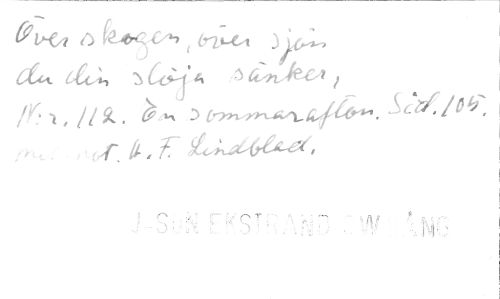 Över skogen, över sjön
du din slöja sänker,
N:r. 112. En sommarafton. Sid. 105.
A. F. Lindblad.
J-SON EKSTRAND